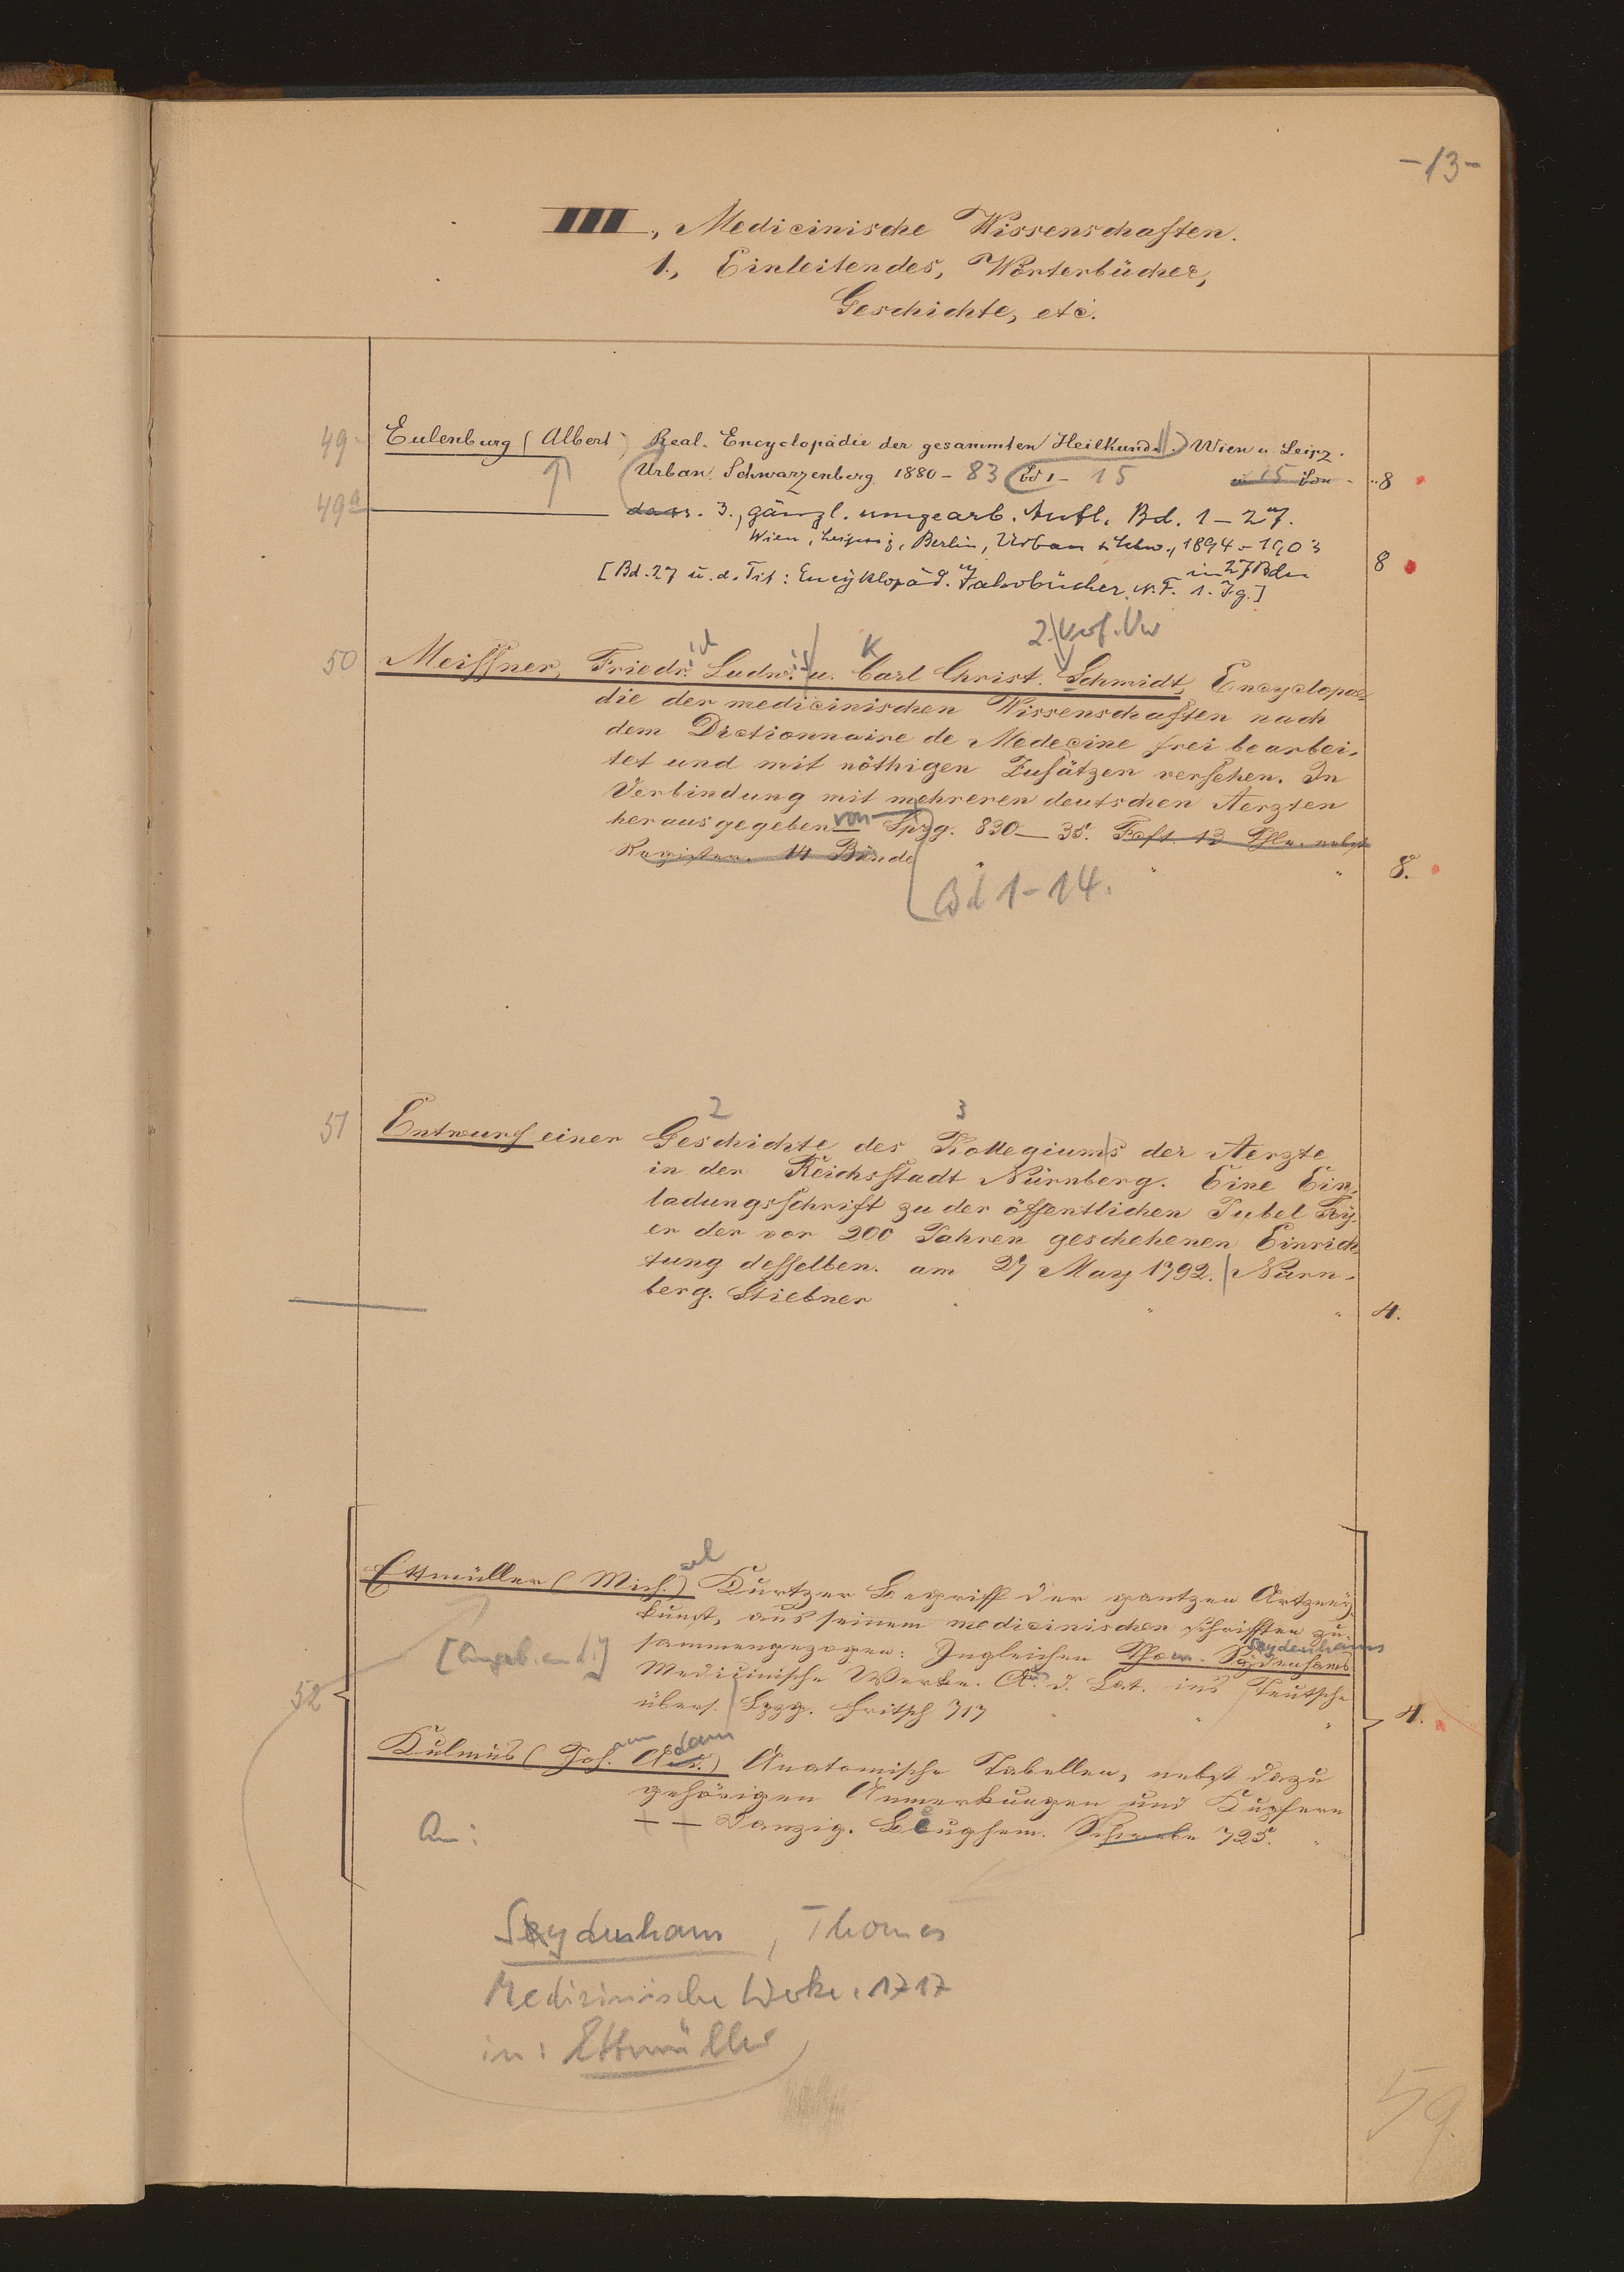 -13-
III., Medicinische Wissenschaften.
1., Einleitendes, Wörterbücher,
Geschichte, etc.
49 Eulenburg (Albert) Real-Encyclopädie der gesammten Heilkunde. Wien u. Leipz.
Urban. Schwarzenberg. 1880-83 Bd 1-15 in 15 " 8
49a dass. 3., gänzl. umgearb. Aufl. Bd. 1-27.
Wien, Leipzig, Berlin, Urban & Schw., 1894-1903
in 27 Bdn 8
[Bd. 27 u. d. Tit: Encyklopäd. Jahrbücher. N.F. 1. Jg.]
2. Verf. Vw
ich ig K
50 Meissner, Friedr. Ludw. u. Carl Christ. Schmidt, Encyclopae-
die der medicinischen Wissenschaften nach
dem Dictionnaire de Medecine frei bearbei-
tet und mit nöthigen Zusätzen versehen. In
Verbindung mit mehreren deutschen Aerzten
herausgegeben von Lpzg. 830-35. 13 nebst
Register. 14 Bände " " 8.
Bd 1-14.
2 3
51 Entwurf einer Geschichte des Kollegiums der Aerzte
in der Reichsstadt Nürnberg. Eine Ein-
ladungsschrift zu der öffentlichen Jubel Fey-
er der vor 200 Jahren geschehenen Einrich-
tung desselben. am 27 May 1792. Nürn-
berg. Stiebner " " " 4.
ael
Ettmüller (Mich.) Kurtzer Begriff der gantzen Artzney-
kunst, aus seinem medicinischen Schrifften zu-
sammengezogen: Ingleichen Thom. Sydenhams
Seydenhams
[Angeb. an d.]
Medicinische Werke. A. d. Lat. ins Teutsche
52 übers. Lpzg. Fritsch 717 " " " 4.
ann dam
Kulmus (Joh. Ad.) Anatomische Tabellen, nebst dazu
gehörigen Anmerkungen und Kupfern
An: — — Danzig. Beughem. Schwabe 725. "
Seydenham, Thomas
Medizinische Werke. 1717
in: Ettmüller
59.